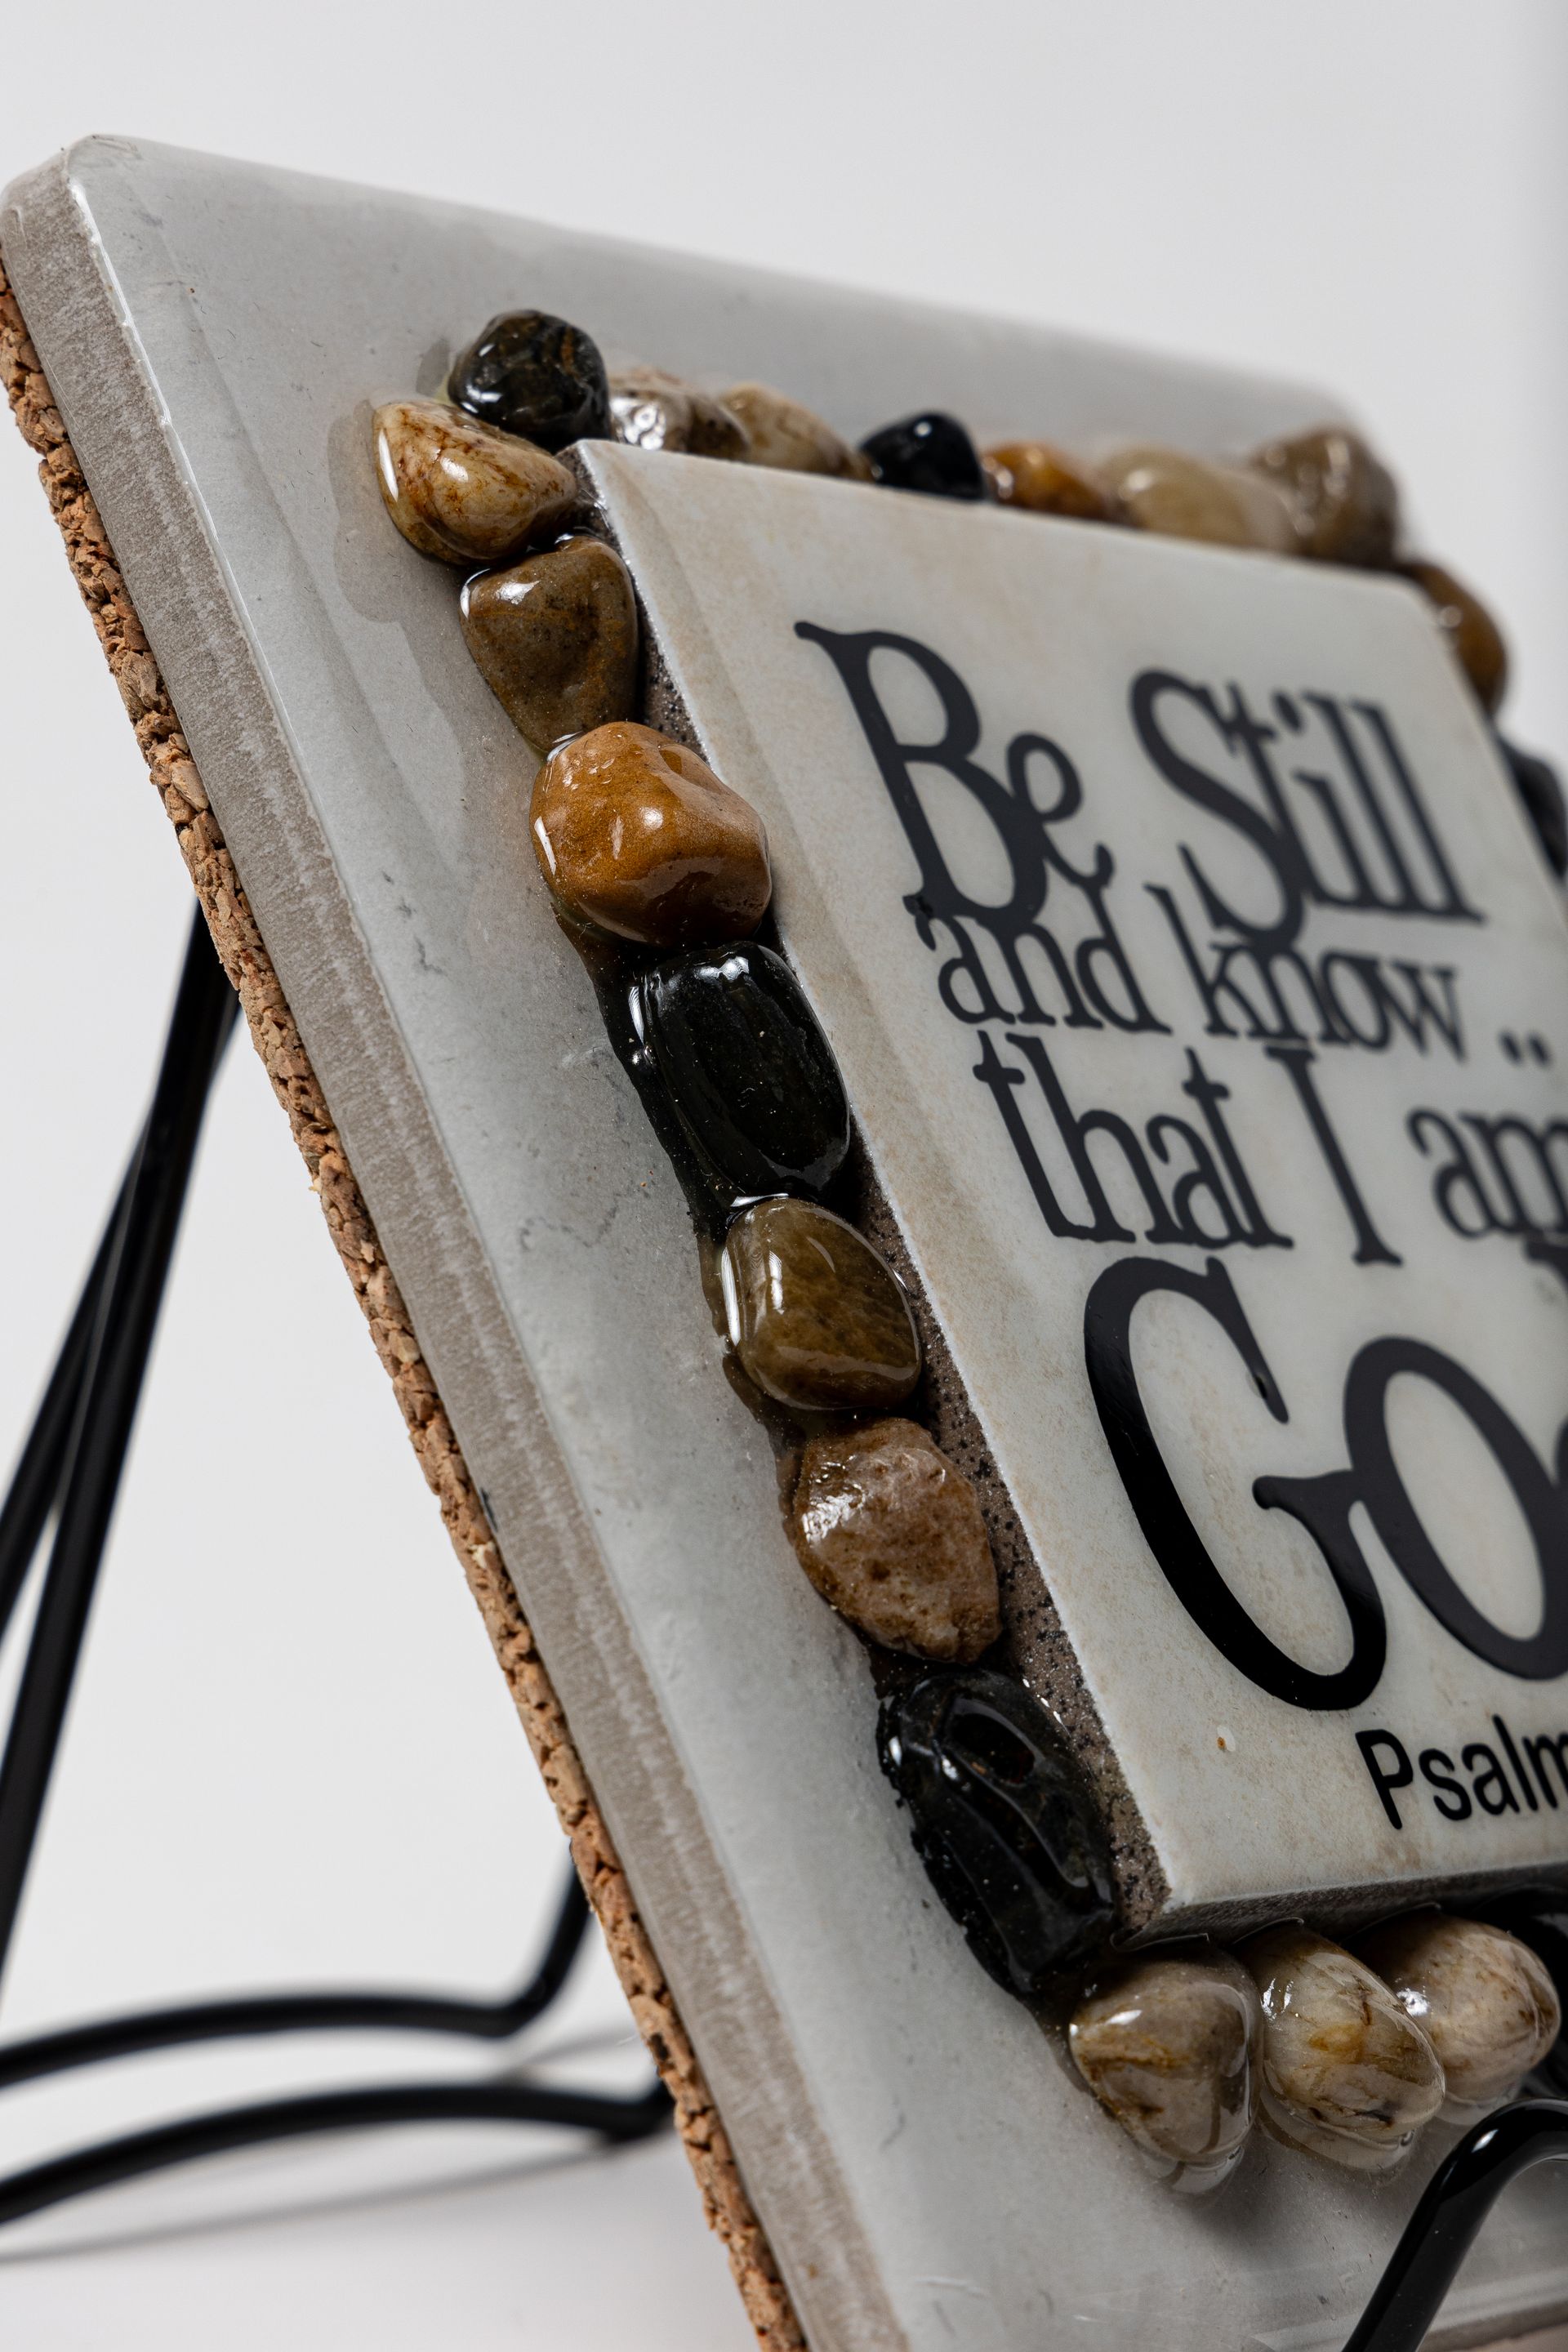 Be Still
and know ..
that I am
God
Psalm